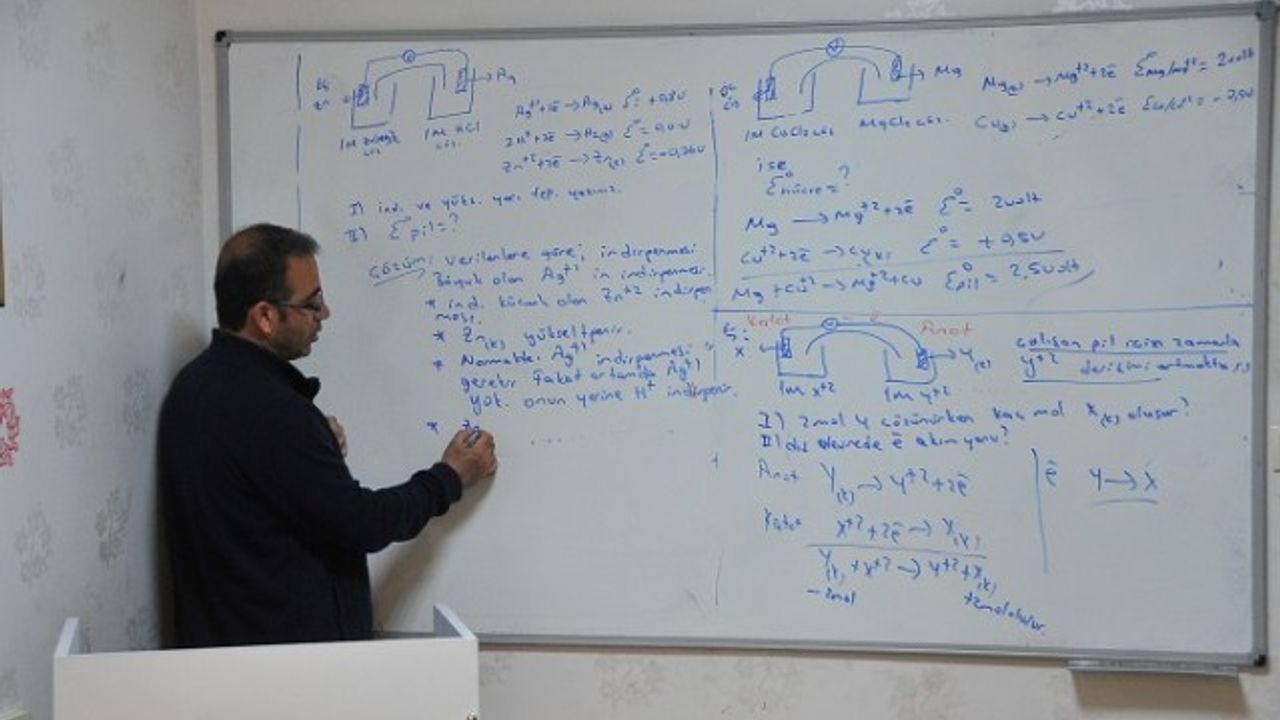 Zn
Ag
1M HCl
Ag⁺¹+1ē → Ag(k) Ɛ° = +0,8V
Zn⁺²+2ē → Zn(k) Ɛ° = -0,76V
I) ind. ve yüks. yarı tep. yazınız.
II) Ɛ° pil = ?
Çözüm: verilenlere göre; indirgenmesi
büyük olan Ag⁺¹ in indirgenmesi
* ind. küçük olan Zn⁺² indirgen
mesi
* Zn(k) yükseltgenir.
* Normalde; Ag⁺¹ indirgenmesi
gerekir fakat ortamda Ag⁺¹
yok. onun yerine H⁺ indirgenir.
*
Mg
1M CuCl₂ MgCl₂
Mg(k) → Mg⁺²+2ē Ɛ°Mg/Mg⁺² = 2 volt
Cu(k) → Cu⁺²+2ē Ɛ°Cu/Cu⁺² = -0,5V
ise
Ɛ° hücre = ?
Mg → Mg⁺²+2ē Ɛ° = 2 volt
Cu⁺²+2ē → Cu(k) Ɛ° = +0,5V
Mg + Cu⁺² → Mg⁺² + Cu Ɛ° pil = 2,5 volt
Katot ē Anot
X
Y(k)
1M X⁺² 1M Y⁺²
çalışan pil için zamanla
Y⁺² derişimi artmakta
I) 2 mol Y çözünürken kaç mol X(k) oluşur?
II) dış devrede ē akım yönü?
Anot Y(k) → Y⁺²+2ē
Katot X⁺²+2ē → X(k)
Y(k) + X⁺² → Y⁺² + X(k)
-2mol +2mol oluşur.
ē Y → X